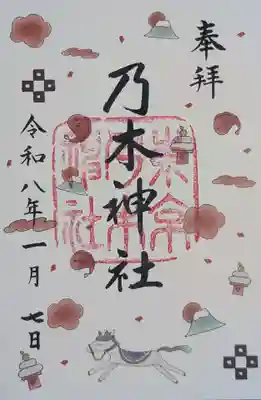 奉拝
乃木神社
令和八年一月七日